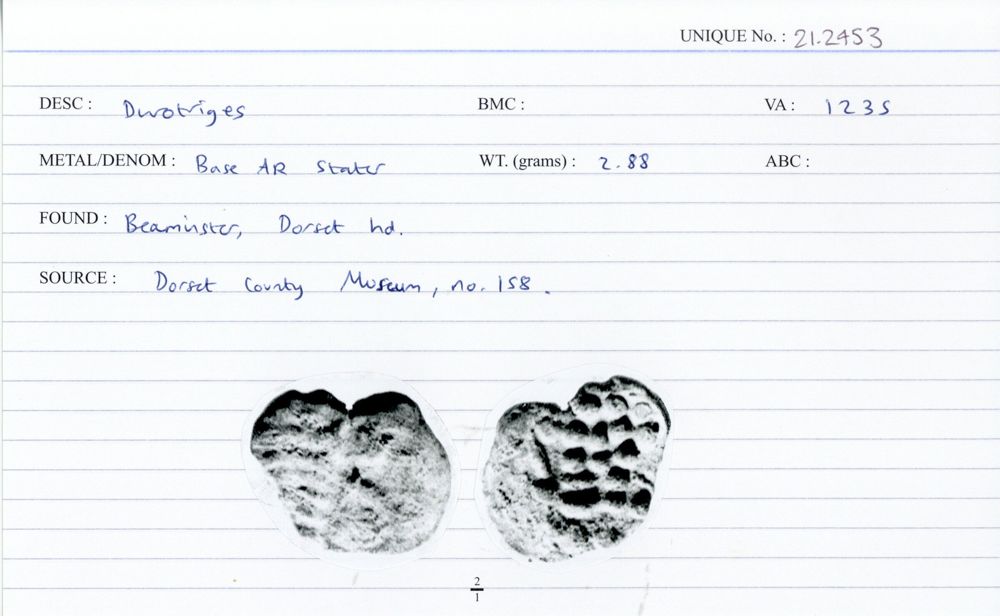 UNIQUE No. : 21.2453
DESC : Durotriges BMC : VA : 1235
METAL/DENOM : Base AR Stater WT. (grams) : 2.88 ABC :
FOUND : Beaminster, Dorset hd.
SOURCE : Dorset County Museum, no. 158.
2
1